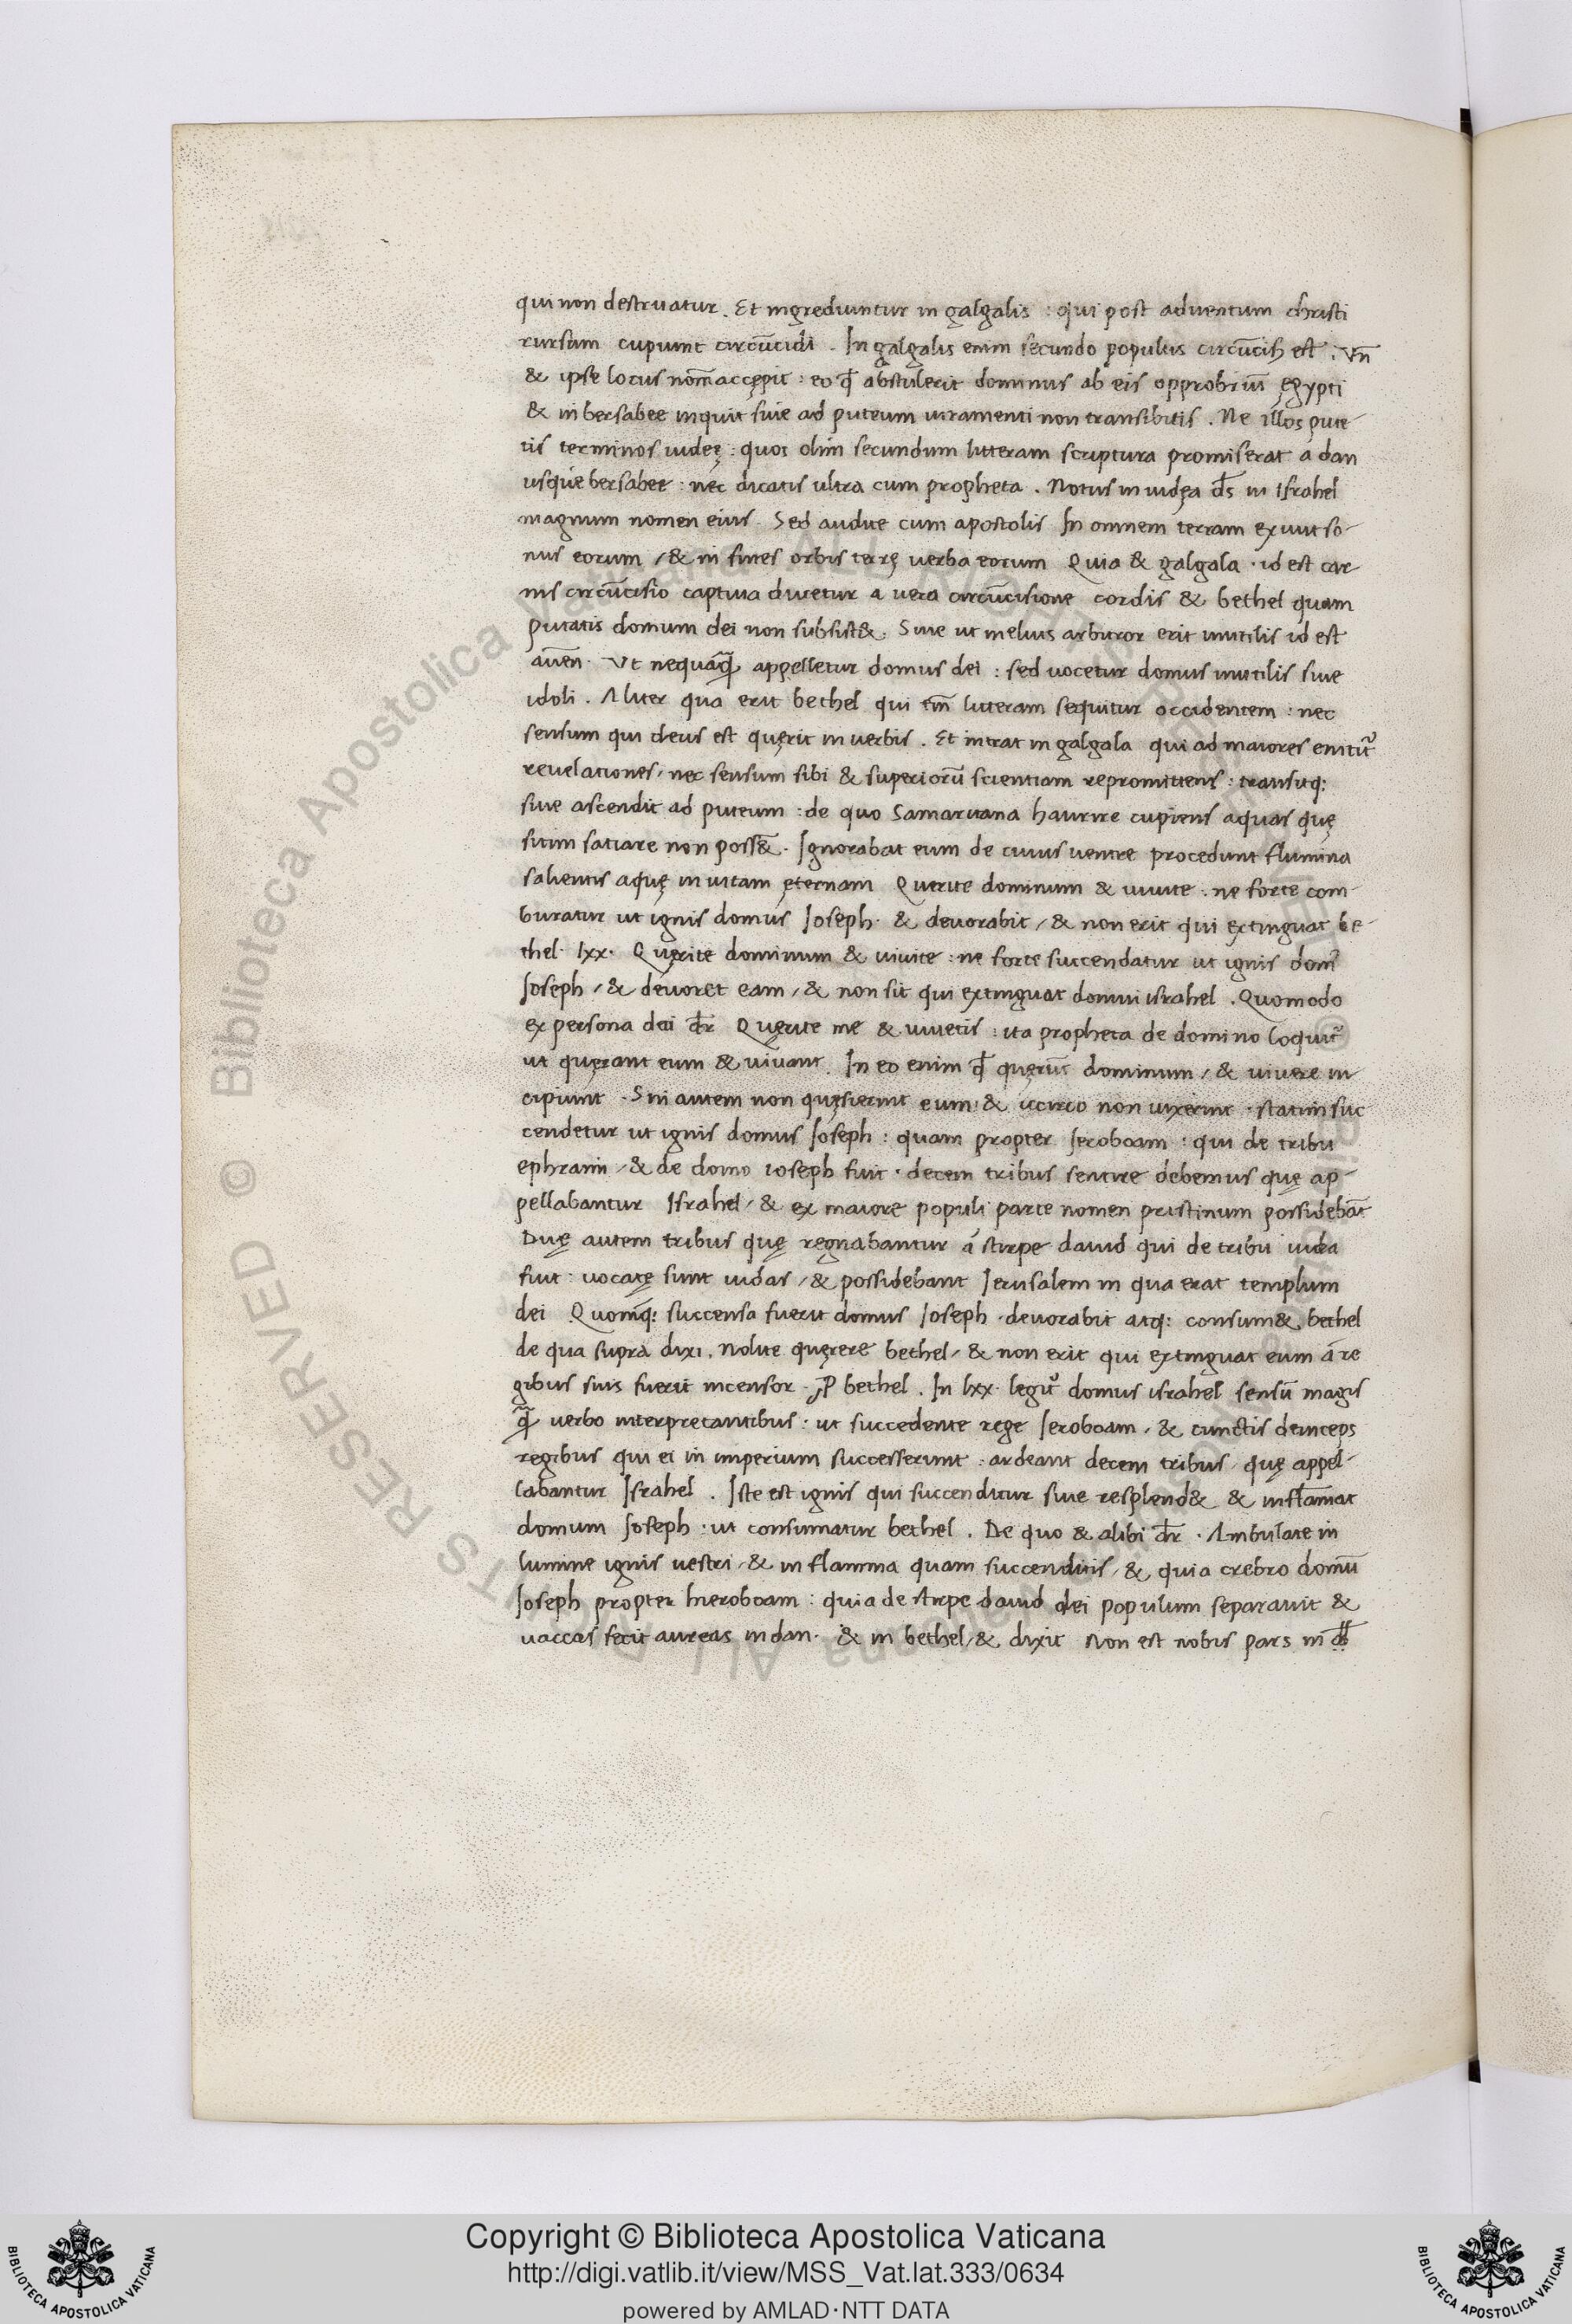 qui non destruatur. Et ingrediuntur in galgalis : qui post aduentum christi
rursum cupiunt circūcidi. In galgalis enim secundo populus circūcisꝫ est. Vn̄
& ipse locus nom̄ accępit : eo q̄ abstulerit dominus ab eis opprobriū ęgypti
& in bersabee inquit siue ad puteum iuramenti non transibitis. Ne illos pute-
tis terminos iudeę : quos olim secundum litteram scriptura promiserat a dan
usque bersabee : nec dicatis ultra cum propheta. Notus in iudęa d̄s in Israhel
magnum nomen eius. Sed audite cum apostolis In omnem terram exiuit so-
nus eorum / & in fines orbis terrę uerba eorum Quia & galgala · id est car-
nis circūcisio captiua ducetur a uera circūcisione cordis & bethel quam
putatis domum dei non subsist&. Siue ut melius arbitror erit inutilis id est
auen. Vt nequaq̄ appelletur domus dei : sed uocetur domus inutilis siue
idoli. Aliter qua erit bethel qui tm̄ litteram sequitur occidentem : nec
sensum qui deus est quęrit in uerbis. Et intrat in galgala qui ad maiores enitit᷑
reuelationes / nec sensum sibi & superiorū scientiam repromittens : transitq:
siue ascendit ad puteum : de quo Samaritana haurire cupiens aquas quę
sitim satiare non poss&. Ignorabat eum de cuius uentre procedunt flumina
salientis aquę in uitam ęternam Querite dominum & uiuite : ne forte com-
buratur ut ignis domus Ioseph · & deuorabit / & non erit qui extinguat be-
thel · lxx · Quęrite dominum & uiuite : ne forte succendatur ut ignis dom᷑
Ioseph / & deuoret eam / & non sit qui extinguat domui israhel. Quomodo
ex persona dei dr̄ Quęrite me & uiuetis : ita propheta de domino loquit᷑
ut quęrant eum & uiuant. In eo enim q̄ quęrūt dominum / & uiuere in
cipiunt. Sin autem non quęsierint eum : & iccirco non uixerint · statim suc
cendetur ut ignis domus Ioseph : quam propter Ieroboam : qui de tribu
ephraim / & de domo ioseph fuit · decem tribus sentire debemus quę ap-
pellabantur Israhel / & ex maiore populi parte nomen pristinum possidebāt
Duę autem tribus quę regnabantur á stirpe dauid qui de tribu iuda
fuit : uocatę sunt iudas / & possidebant Ierusalem in qua erat templum
dei Quomq̄: succensa fuerit domus Ioseph · deuorabit atq: consum& bethel
de qua supra dixi. Nolite quęrere bethel / & non erit qui extinguat eum á re
gibus suis fuerit incensor · P bethel. In lxx · legit᷑ domus israhel sensū magis
q̄ uerbo interpretantibus : ut succedente rege Ieroboam / & cunctis deinceps
regibus qui ei in imperium successerunt : ardeant decem tribus quę appel-
labantur Israhel. Iste est ignis qui succenditur siue resplend& & inflāmat
domum Ioseph : ut consumatur bethel. De quo & alibi dr̄ · Ambulate in
lumine ignis uestri / & in flamma quam succenditis / & quia crebro domū
Ioseph propter hieroboam : quia de stirpe dauid dei populum separauit &
uaccas fecit aureas in dan · & in bethel / & dixit Non est nobis pars in
Copyright © Biblioteca Apostolica Vaticana
http://digi.vatlib.it/view/MSS_Vat.lat.333/0634
powered by AMLAD·NTT DATA
BIBLIOTECA APOSTOLICA VATICANA
BIBLIOTECA APOSTOLICA VATICANA